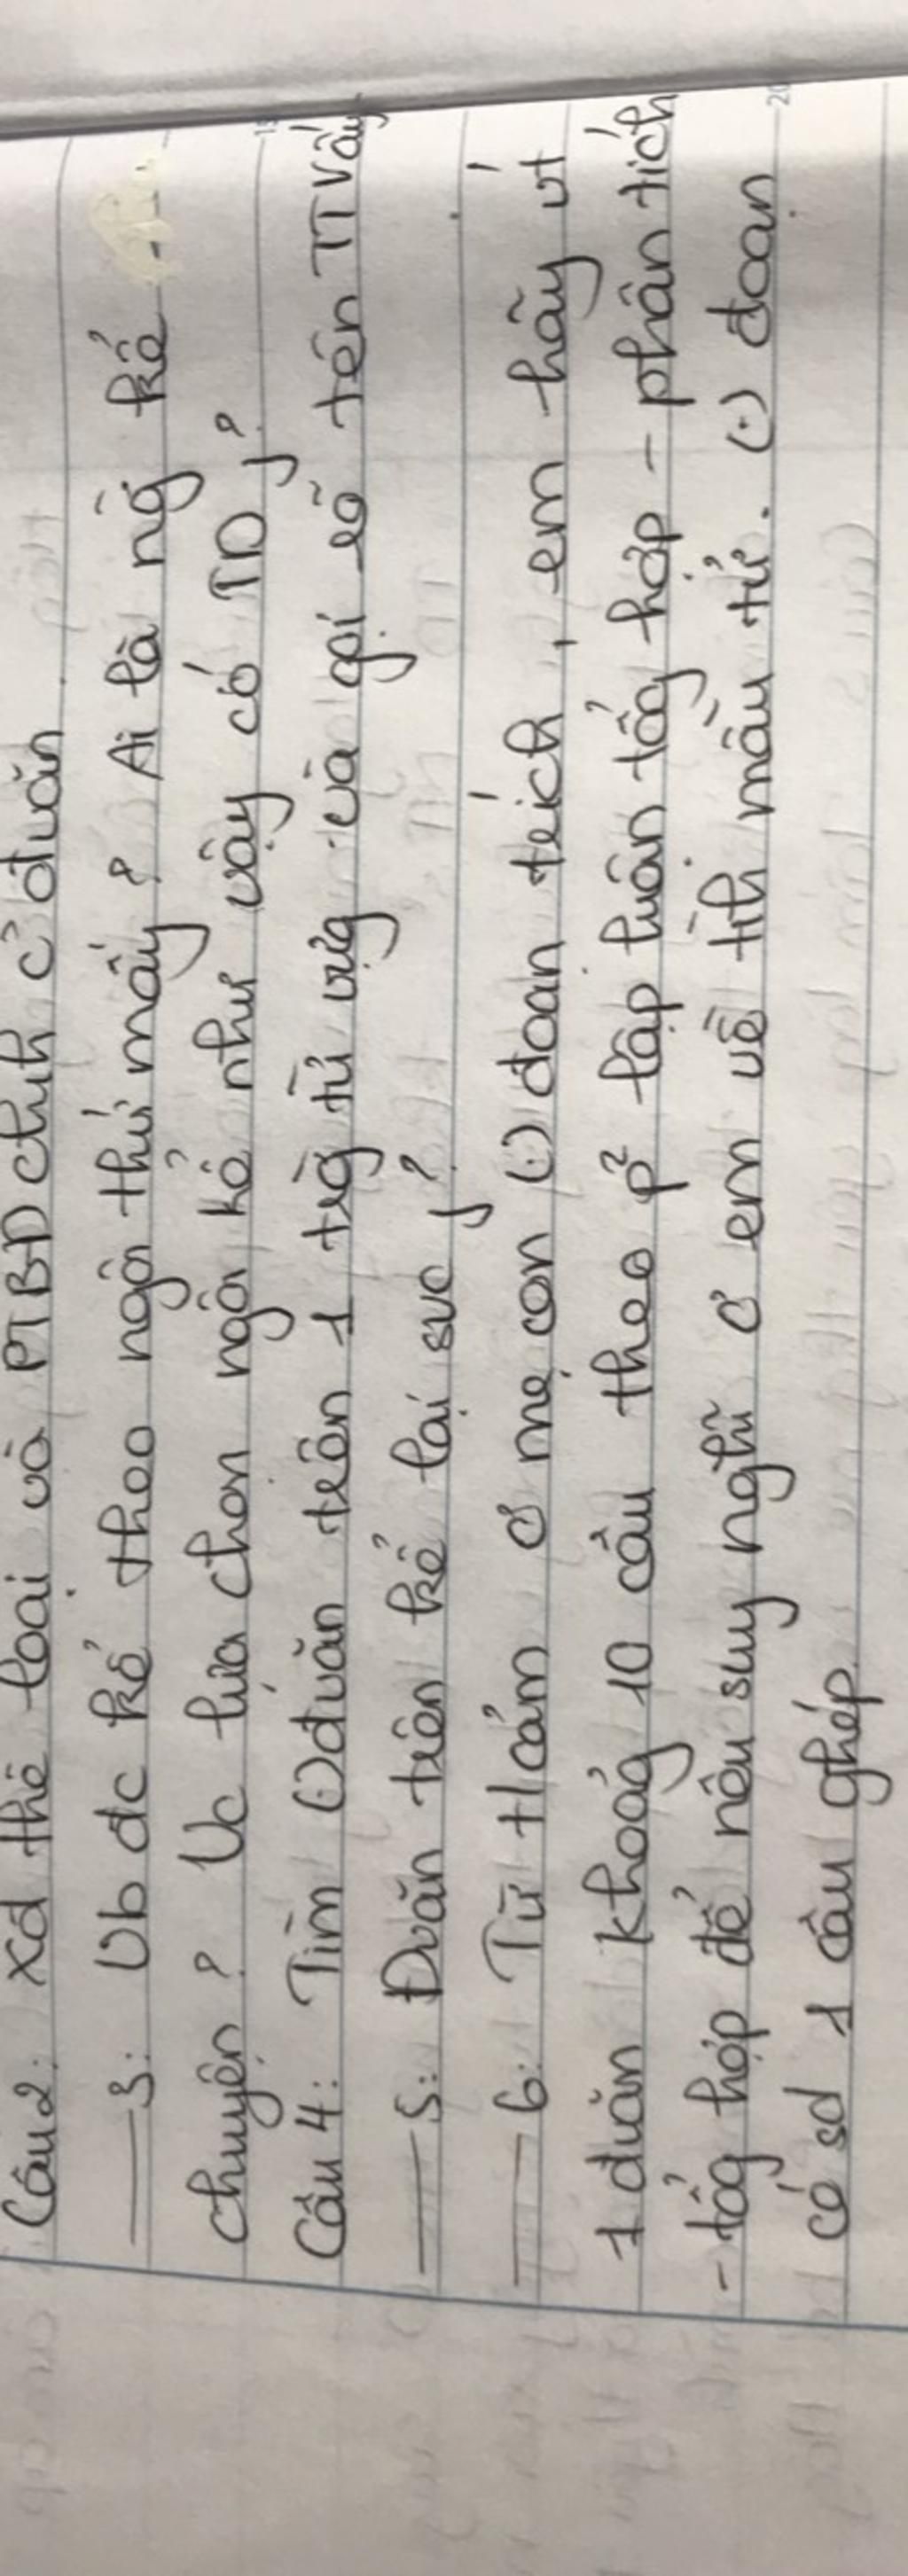 Câu 2: Xđ thể loại và PTBĐ chính c' đvăn.
— 3: Vb đc kể theo ngôi thứ mấy? Ai là ng̀ kể
chuyện? Vc lựa chọn ngôi kể như vậy có TD j?
Câu 4: Tìm (.) đvăn trên 1 trg̀ từ vựg và gọi rõ tên TTVấy
— 5: Đvăn trên kể lại sv j?
— 6: Từ t/cảm c' mẹ con (.) đoạn trích, em hãy vt
1 đvăn khoảg 10 câu theo p² lập luận tổg hợp - phân tích
- tổg hợp để nêu suy nghĩ c' em về tìh mẫu tử. (.) đoạn
có sd 1 câu ghép.
15
20